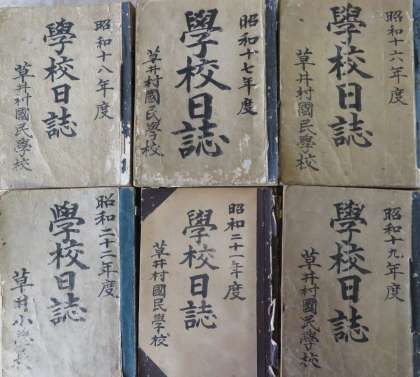 昭和十六年度
學校日誌
草井村國民學校
昭和十七年度
學校日誌
草井村國民學校
昭和十八年度
學校日誌
草井村國民學校
昭和十九年度
學校日誌
草井村國民學校
昭和二十一年度
學校日誌
草井村國民學校
昭和二十二年度
學校日誌
草井小學校